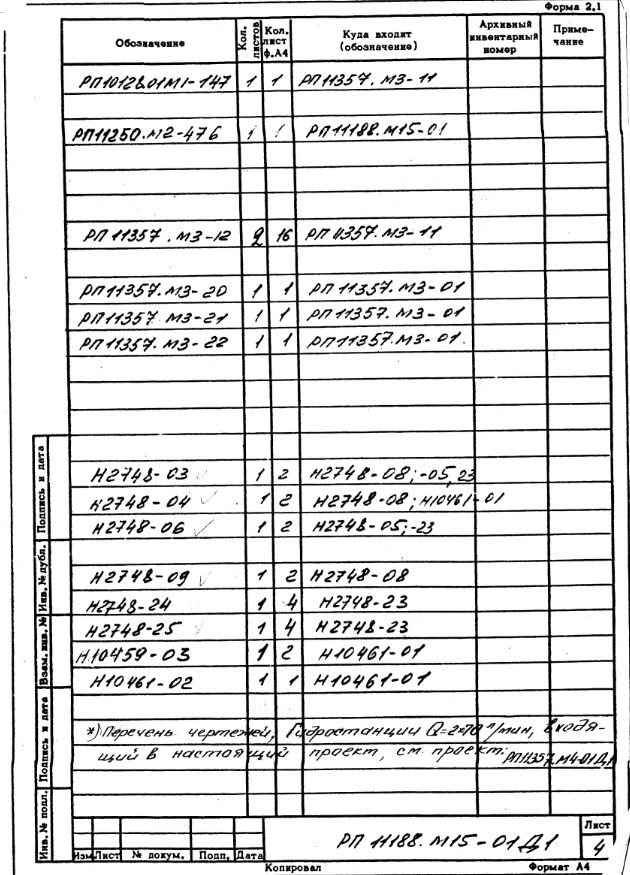 Форма 2.1
Обозначение | Кол. листов | Кол. лист ф.А4 | Куда входит (обозначение) | Архивный инвентарный номер | Приме-чание
РП10128.01М1-147 | 1 | 1 | РП11357.М3-11
РП11250.М2-476 | 1 | 1 | РП11188.М15-01
РП11357.М3-12 | 2 | 16 | РП11357.М3-11
РП11357.М3-20 | 1 | 1 | РП11357.М3-01
РП11357 М3-21 | 1 | 1 | РП11357.М3-01
РП11357.М3-22 | 1 | 1 | РП11357.М3-01.
Н2748-03 | 1 | 2 | Н2748-08; -05, 23
Н2748-04 | 1 | 2 | Н2748-08; Н10461-01
Н2748-06 | 1 | 2 | Н2748-05;-23
Н2748-09 | 1 | 2 | Н2748-08
Н2748-24 | 1 | 4 | Н2748-23
Н2748-25 | 1 | 4 | Н2748-23
Н10459-03 | 1 | 2 | Н10461-01
Н10461-02 | 1 | 1 | Н10461-01
*) Перечень чертежей, Гидростанции Q=2×70 л/мин, входя-
щий в настоящий проект, см. проект. РП11357.М4-01Д1
Инв. № подл. | Подпись и дата | Взам. инв. № | Инв. № дубл. | Подпись и дата
Изм | Лист | № докум. | Подп. | Дата
РП 11188.М15-01Д1
Лист
4
Копировал
Формат А4